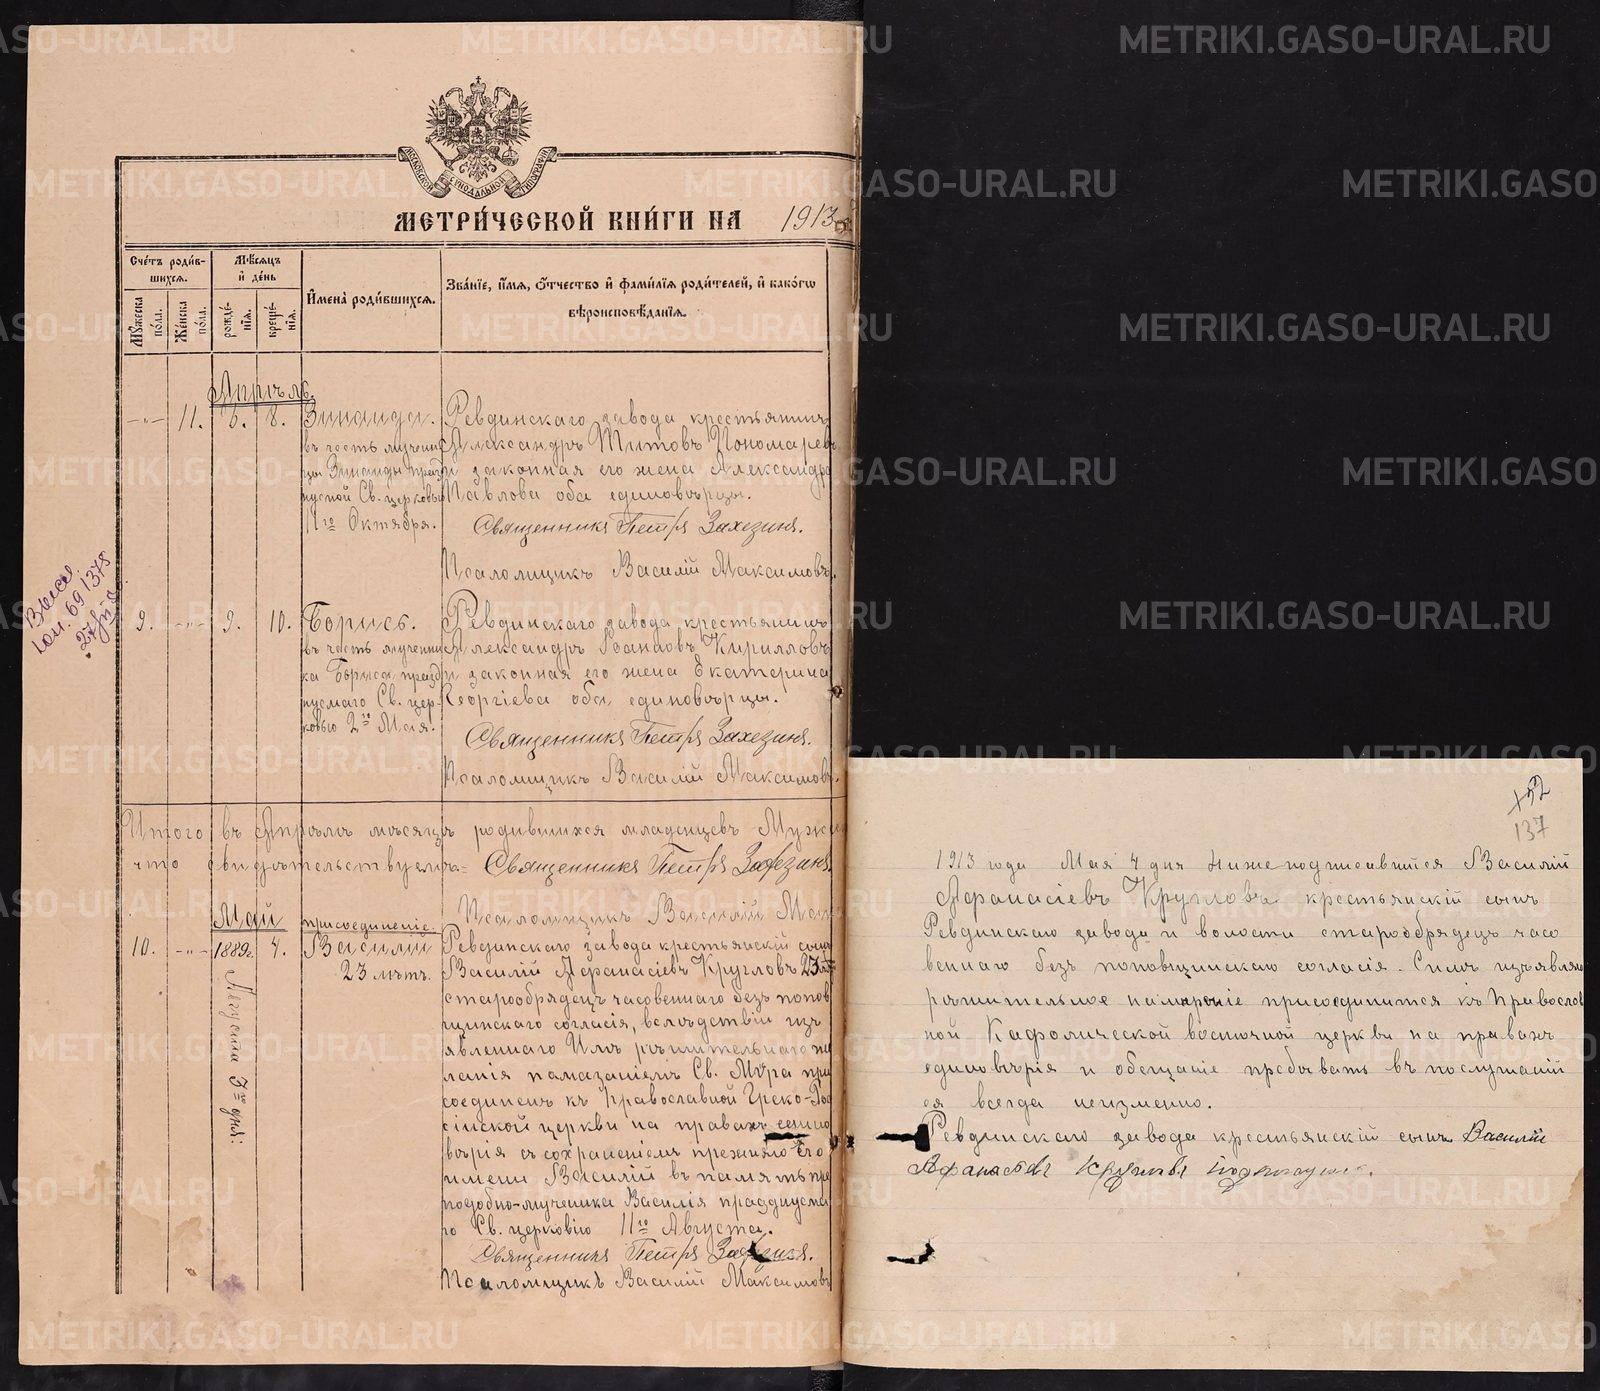 МЕТРИ́ЧЕСКОЙ КНИ́ГИ НА 1913
МОСКОВСКОЙ СѴНОДАЛЬНОЙ ТИПОГРАФІИ
Сче́тъ роди́в-
шихсѧ.
Мѣ́сѧцъ
и҆ де́нь
Мꙋ́жеска по́ла.
Же́нска по́ла.
рожде́-нїѧ.
креще́-нїѧ.
И҆мена̀ роди́вшихсѧ.
Зва́нїе, и҆́мѧ, ѻ҆́тчество и҆ фами́лїѧ роди́телей, и҆ како́гѡ
вѣроисповѣ́данїѧ.
Апрѣль.
-"- 11. 6. 8. Зинаида.
въ честь мучени
цы Зинаиды празд
нуемой Св. церковью
11го Октября.
Ревдинскаго завода крестьянинъ
Александръ Титовъ Пономаревъ
и законная его жена Александра
Павлова оба единовѣрцы.
Священникъ Петръ Захезинъ.
Псаломщикъ Василій Максимовъ.
27
9. -"- 9. 10. Борисъ.
въ честь мучени
ка Бориса празд
нуемаго Св. цер-
ковью 2го Мая.
Ревдинскаго завода крестьянинъ
Александръ Кирилловъ
и законная его жена Екатерина
Георгіева оба единовѣрцы.
Священникъ Петръ Захезинъ.
Псаломщикъ Василій Максимовъ.
Итого въ Апрѣлѣ мѣсяцѣ родившихся младенцевъ Муже
что свидѣтельствуемъ: Священникъ Петръ Захезинъ.
Псаломщикъ Василій Мак
Май присоединеніе.
10. -"- 1889г. 4. Василій
23 лѣтъ.
Августа 7го дня:
Ревдинскаго завода крестьянскій сынъ
Василій Афанасіевъ Кругловъ 23 лѣт
старообрядецъ часовеннаго безъ попов
щинскаго согласія, вслѣдствіи изъ
явленнаго Имъ рѣшительнаго же
ланія помазаніемъ Св. Мѵра при
соединенъ къ Православной Греко-Рос
сійской церкви на правахъ едино
вѣрія съ сохраненіемъ прежняго Его
имени Василій въ память пре
подобно-мученика Василія празднуема
го Св. церковію 11го Августа.
Священникъ Петръ Захезинъ.
Псаломщикъ Василій Максимовъ
137
1913 года Мая 4 дня Нижеподписавшійся Василій
Афанасіевъ Кругловъ крестьянскій сынъ
Ревдинскаго завода и волости старообрядецъ часо
веннаго безъ поповщинскаго согласія. Симъ изъявляю
рѣшительное намѣреніе присоединится къ Православ
ной Кафолической восточной церкви на правахъ
единовѣрія и обещаніе пребывать въ послушаніи
ея всегда неизменно.
Ревдинскаго завода крестьянскій сынъ Василій
Афанасіевъ Кругловъ
METRIKI.GASO-URAL.RU